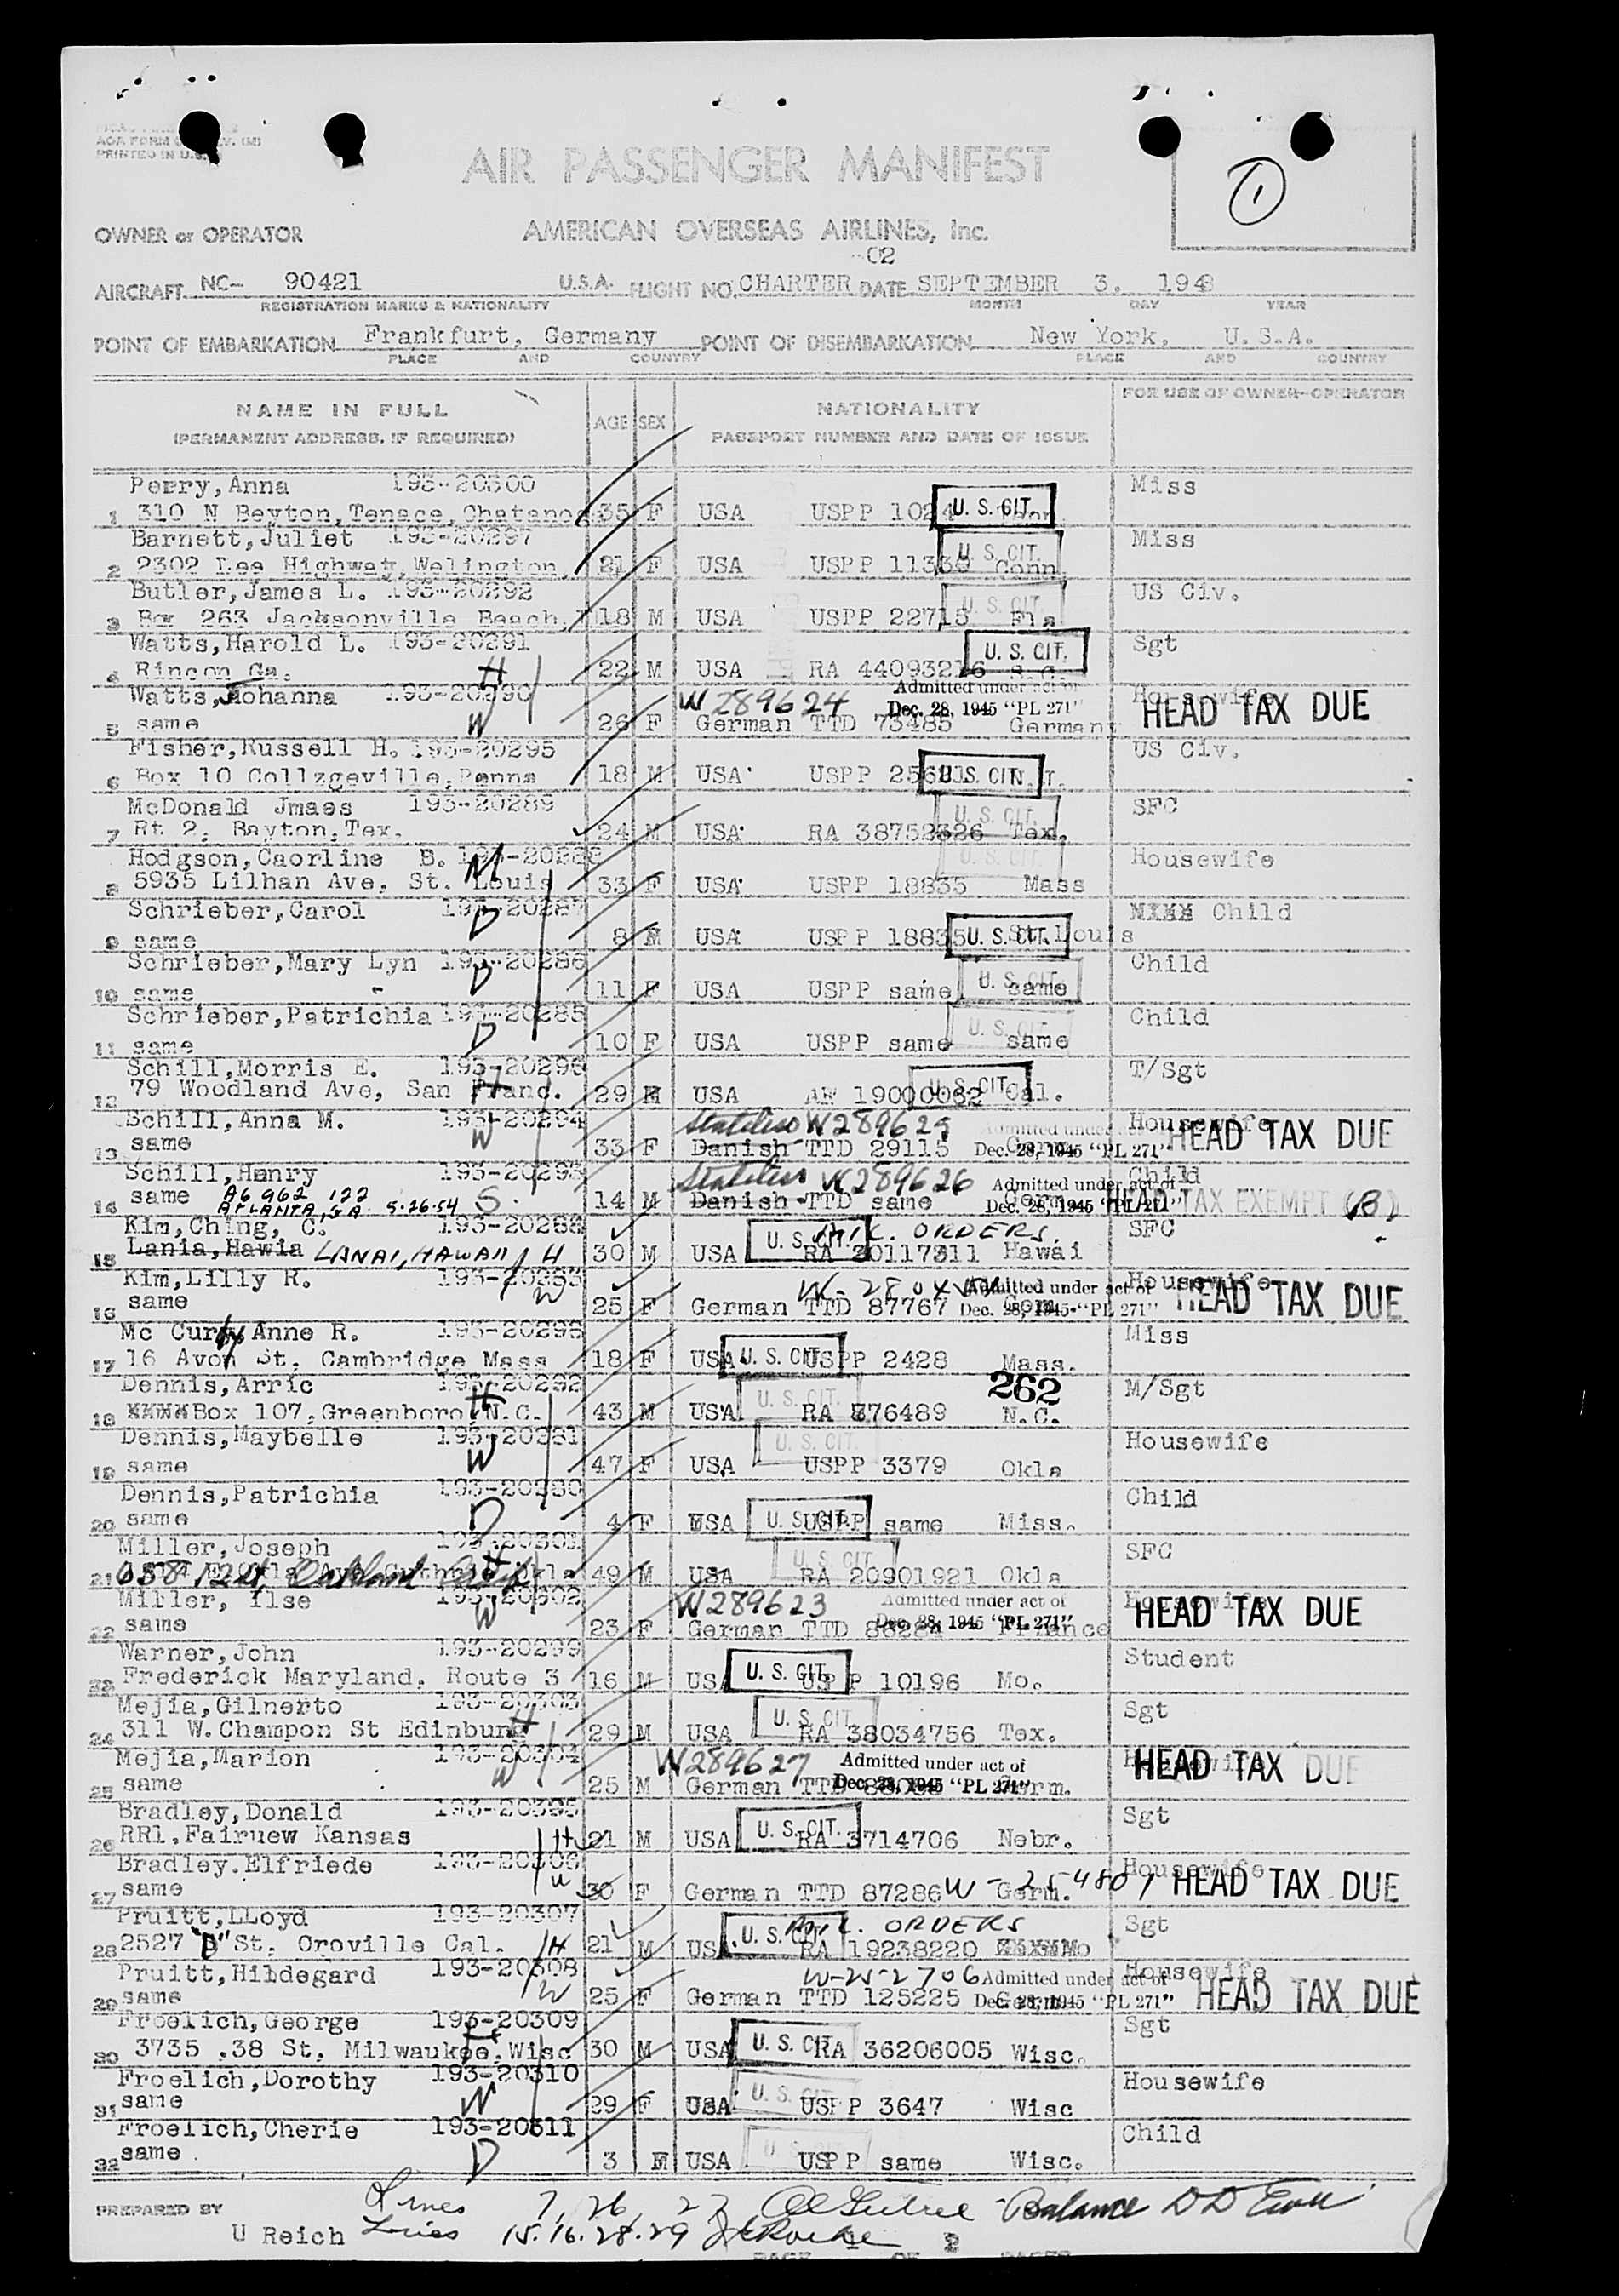 PRINTED IN U.S.
AIR PASSENGER MANIFEST
1
OWNER or OPERATOR AMERICAN OVERSEAS AIRLINES, Inc.
-02
AIRCRAFT NC- 90421 U.S.A. FLIGHT NO. CHARTER DATE SEPTEMBER 3. 1948
REGISTRATION MARKS & NATIONALITY MONTH DAY YEAR
POINT OF EMBARKATION Frankfurt, Germany POINT OF DISEMBARKATION New York, U.S.A.
PLACE AND COUNTRY PLACE AND COUNTRY
NAME IN FULL AGE SEX NATIONALITY FOR USE OF OWNER-OPERATOR
(PERMANENT ADDRESS, IF REQUIRED) PASSPORT NUMBER AND DATE OF ISSUE
Perry, Anna 193-20300 Miss
1 310 N Beyton, Tenace, Chatano 35 F USA USPP 1024 U. S. CIT.
Barnett, Juliet 193-20297 Miss
2 2302 Lee Highway, Welington, 21 F USA USPP 11330 Conn U. S. CIT.
Butler, James L. 193-20292 US Civ.
3 Box 263 Jacksonville Beach, 18 M USA USPP 22715 Fla U. S. CIT.
Watts, Harold L. 193-20291 Sgt
4 Rincon Ga. H 22 M USA RA 44093216 S.C. U. S. CIT.
Watts, Johanna 193-20290 W289624 Admitted under act of Housewife
5 same W 26 F German TTD 73485 Germany Dec. 28, 1945 "PL 271" HEAD TAX DUE
Fisher, Russell H. 193-20295 US Civ.
6 Box 10 Collzgeville, Penna 18 M USA USPP U. S. CIT.
McDonald Jmaes 193-20289 SFC
7 Rt 2. Bayton, Tex. 24 M USA RA 38752326 Tex. U. S. CIT.
Hodgson, Caorline B. 193-20288 M Housewife
8 5935 Lilhan Ave. St. Louis 33 F USA USPP 18835 Mass U. S. CIT.
Schrieber, Carol 193-20287 D Child
9 same 8 M USA USPP 18835 St. Louis U. S. CIT.
Schrieber, Mary Lyn 193-20286 D Child
10 same 11 F USA USPP same same U. S. CIT.
Schrieber, Patrichia 193-20285 D Child
11 same 10 F USA USPP same same U. S. CIT.
Schill, Morris E. 193-20296 T/Sgt
12 79 Woodland Ave, San Franc. H 29 M USA AF 19000062 Cal. U. S. CIT.
Schill, Anna M. 193-20294 Stateless W289629 Admitted under Housewife
13 same W 33 F Danish TTD 29115 Germ. Dec. 28, 1945 "PL 271" HEAD TAX DUE
Schill, Henry 193-20293 Stateless W289626 Admitted under act of Child
14 same A6 962 122 ATLANTA, GA 5-26-54 S. 14 M Danish TTD same Germ. Dec. 28, 1945 "PL 271" HEAD TAX EXEMPT (B)
Kim, Ching, C. 193-20288 MIL. ORDERS. SFC
15 Lania, Hawia LANAI, HAWAII H 30 M USA U. S. CIT. RA 30117311 Hawai
Kim, Lilly R. 193-20283 Admitted under act of Housewife
16 same W 25 F German TTD 87767 Germ. Dec. 28, 1945 "PL 271" HEAD TAX DUE
Mc Curdy Anne R. 193-20298 Miss
17 16 Avon St. Cambridge Mass 18 F USA U. S. CIT. USPP 2428 Mass.
Dennis, Arric 193-20282 262 M/Sgt
18 Box 107, Greenboro, N.C. H 43 M USA U. S. CIT. RA 876489 N.C.
Dennis, Maybelle 193-20281 Housewife
19 same W 47 F USA U. S. CIT. USPP 3379 Okla
Dennis, Patrichia 193-20280 Child
20 same D 4 F USA U. S. CIT. USPP same Miss.
Miller, Joseph 193-20301 SFC
21 658 12th Oakland H 49 M USA U. S. CIT. RA 20901921 Okla
Miller, Ilse 193-20302 W289623 Admitted under act of Housewife
22 same W 23 F German TTD Dec. 28, 1945 "PL 271" France HEAD TAX DUE
Warner, John 193-20299 Student
23 Frederick Maryland. Route 3 16 M USA U. S. CIT. USPP 10196 Mo.
Mejia, Gilnerto 193-20303 Sgt
24 311 W. Champon St Edinburg H 29 M USA U. S. CIT. RA 38034756 Tex.
Mejia, Marion 193-20304 W289627 Admitted under act of Housewife
25 same W 25 M German TTD Germ. Dec. 28, 1945 "PL 271" HEAD TAX DUE
Bradley, Donald 193-20305 Sgt
26 RR1, Fairuew Kansas H 21 M USA U. S. CIT. RA 3714706 Nebr.
Bradley. Elfriede 193-20306 Housewife
27 same W 30 F German TTD 87286 W-254807 Germ. HEAD TAX DUE
Pruitt, LLoyd 193-20307 MIL. ORDERS Sgt
28 2527 "B" St. Oroville Cal. H 21 M USA U. S. CIT. RA 19238220
Pruitt, Hildegard 193-20308 W-252706 Admitted under act of Housewife
29 same W 25 F German TTD 125225 Germ. Dec. 28, 1945 "PL 271" HEAD TAX DUE
Froelich, George 193-20309 Sgt
30 3735 .38 St. Milwaukee, Wisc H 30 M USA U. S. CIT. RA 36206005 Wisc.
Froelich, Dorothy 193-20310 Housewife
31 same W 29 F USA U. S. CIT. USPP 3647 Wisc
Froelich, Cherie 193-20311 Child
32 same D 3 F USA U. S. CIT. USPP same Wisc.
PREPARED BY Lines 7, 26, 27 Balance
U Reich Lines 15. 16. 28. 29
PAGE 1 OF 2 PAGES